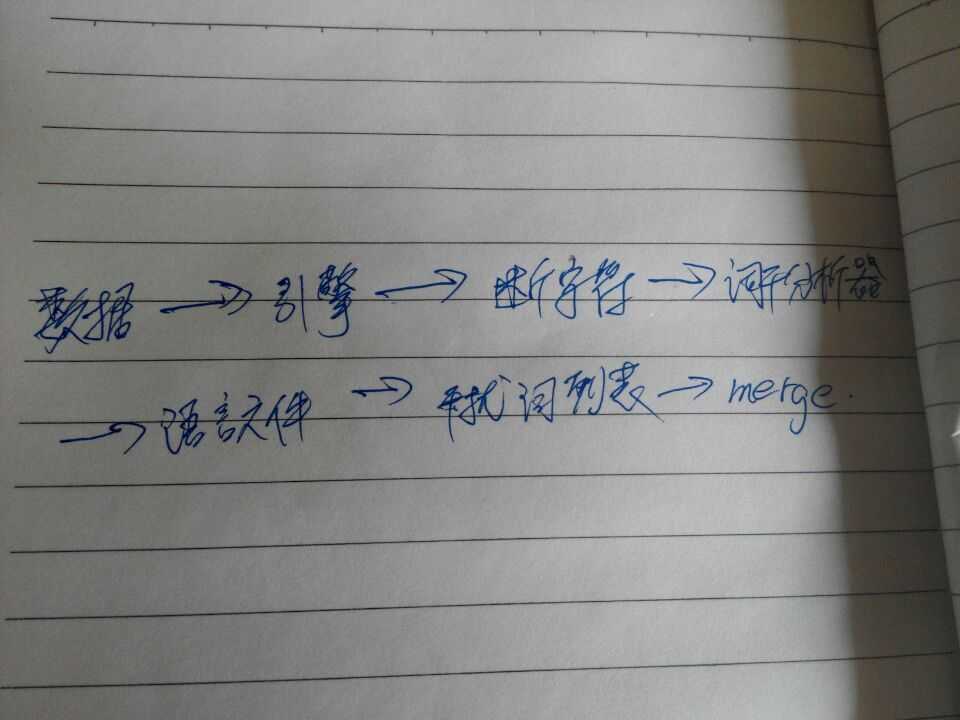 数据 → 引擎 → 断字符 → 词干分析器
→ 语言文件 → 干扰词列表 → merge.